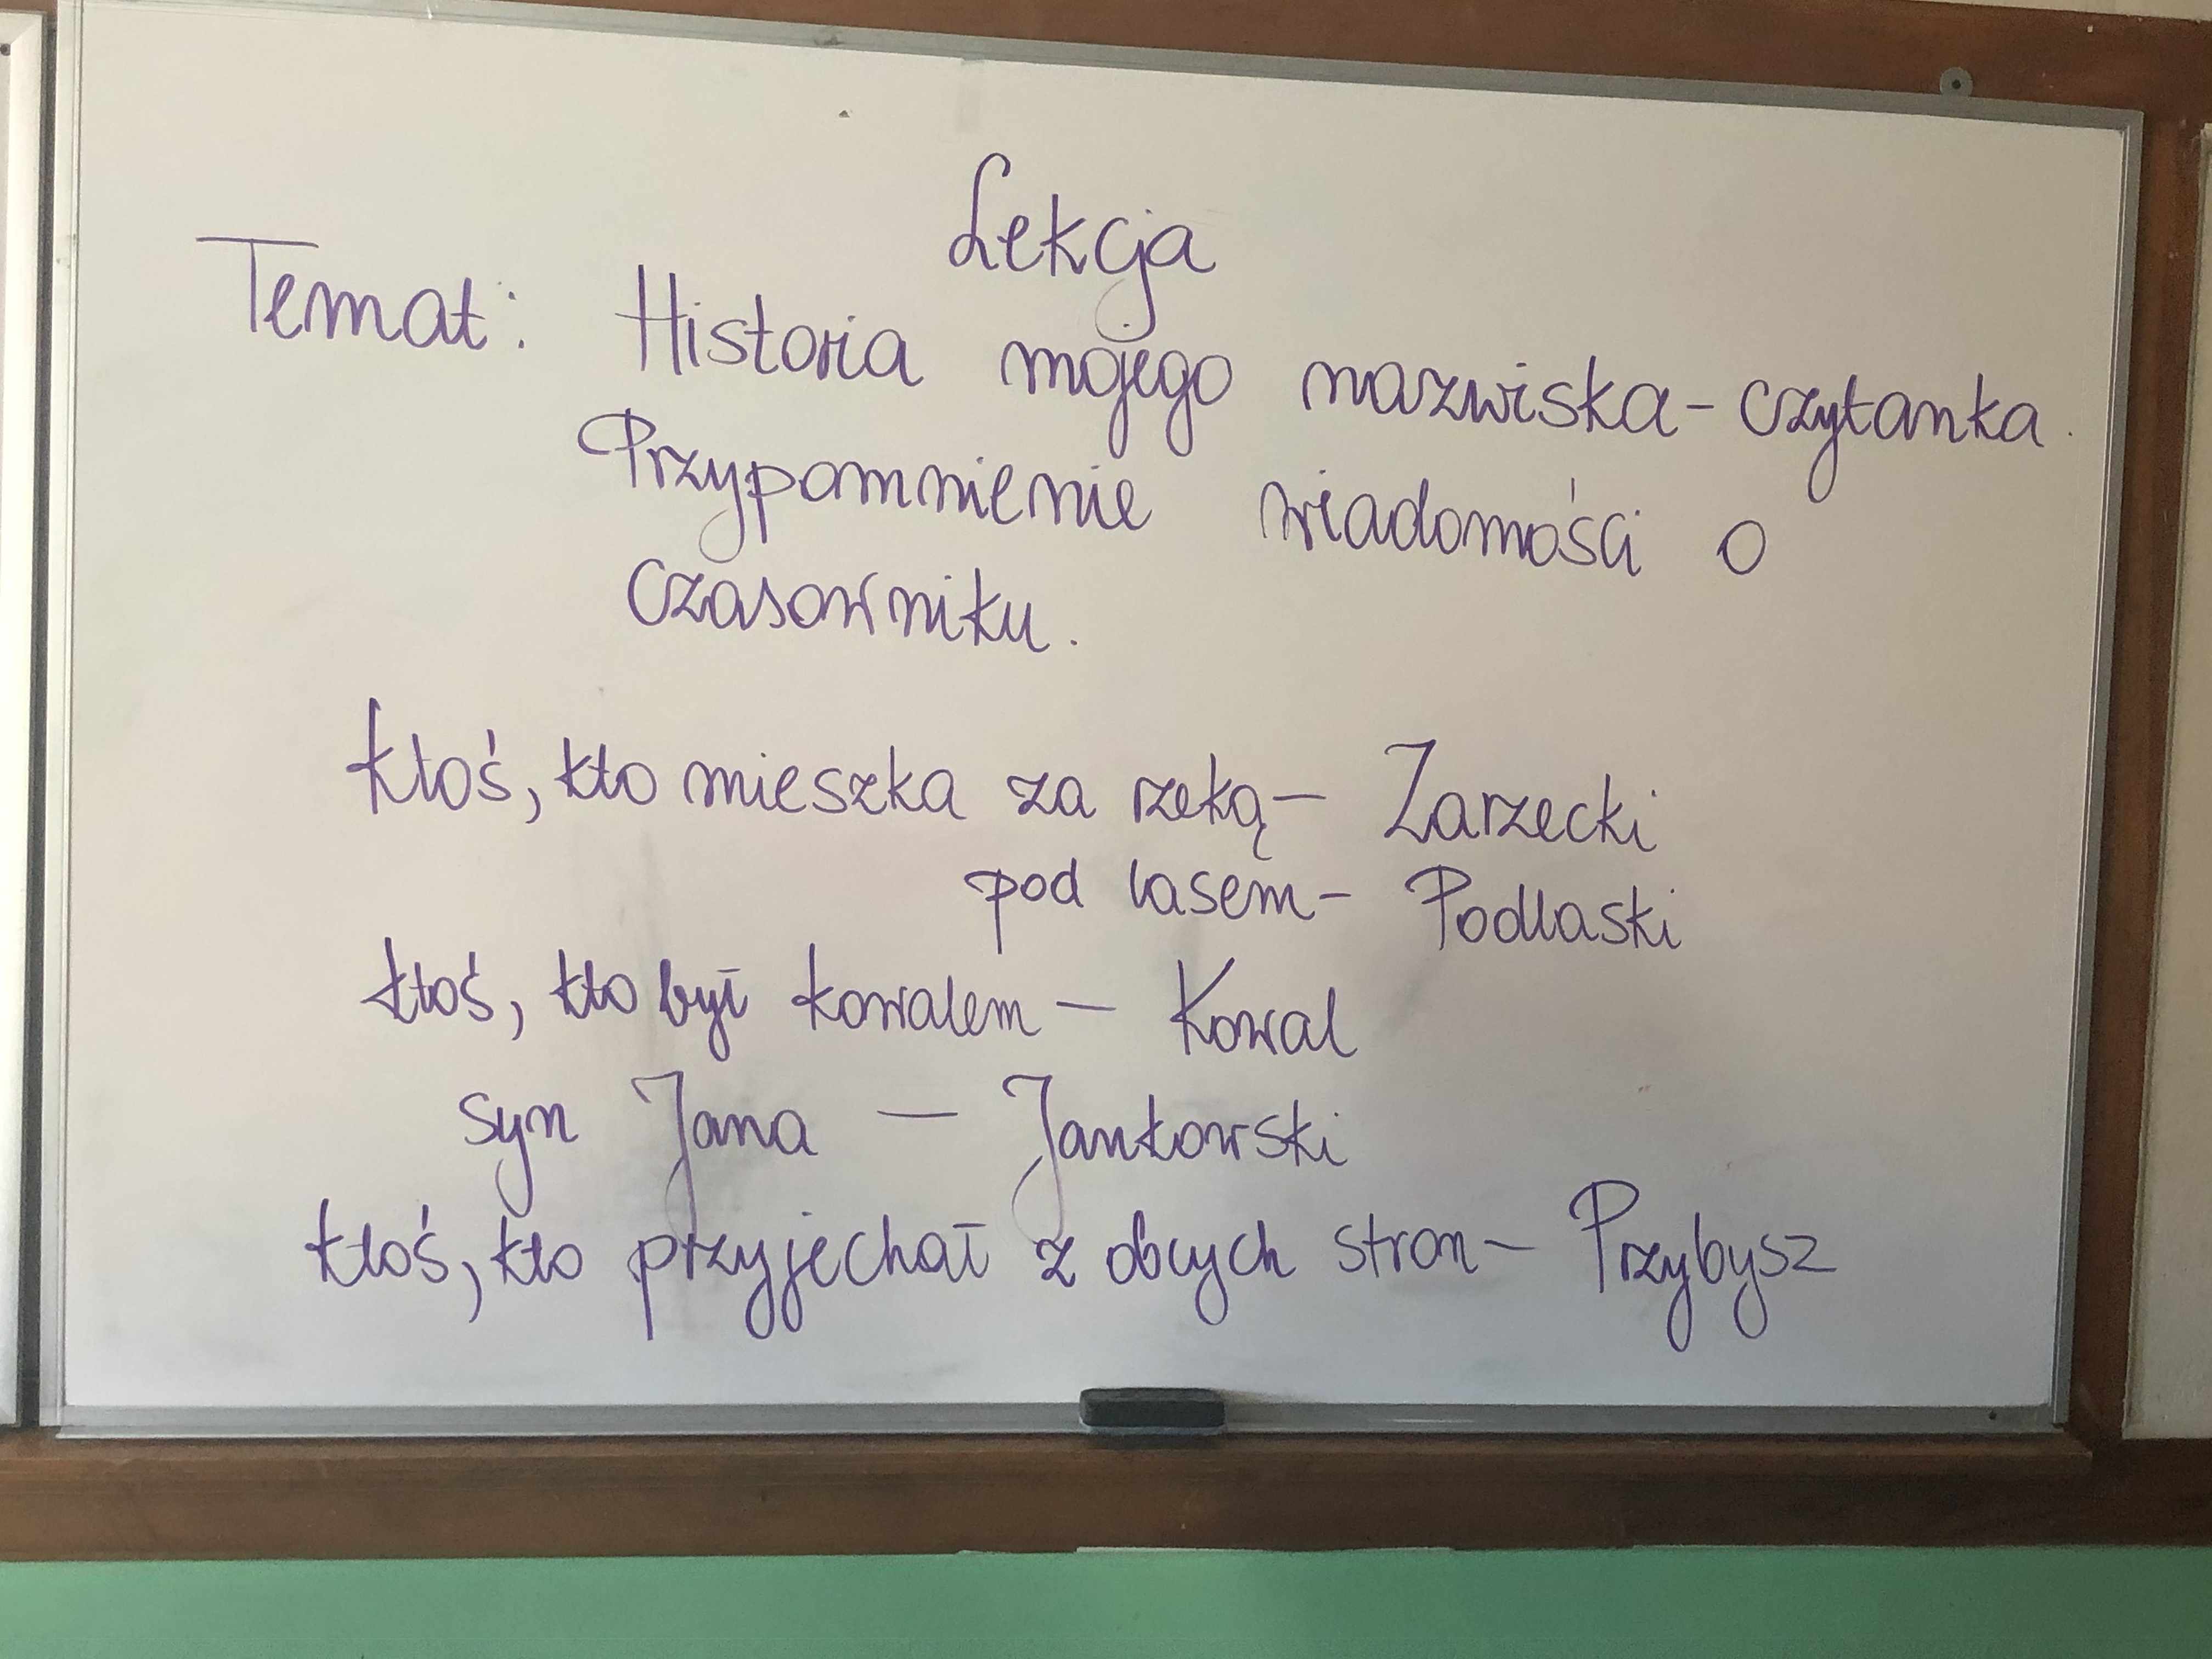 Lekcja
Temat: Historia mojego nazwiska - czytanka.
Przypomnienie wiadomości o
czasowniku.
ktoś, kto mieszka za rzeką - Zarzecki
pod lasem - Podlaski
ktoś, kto był kowalem - Kowal
syn Jana - Jankowski
ktoś, kto przyjechał z obcych stron - Przybysz